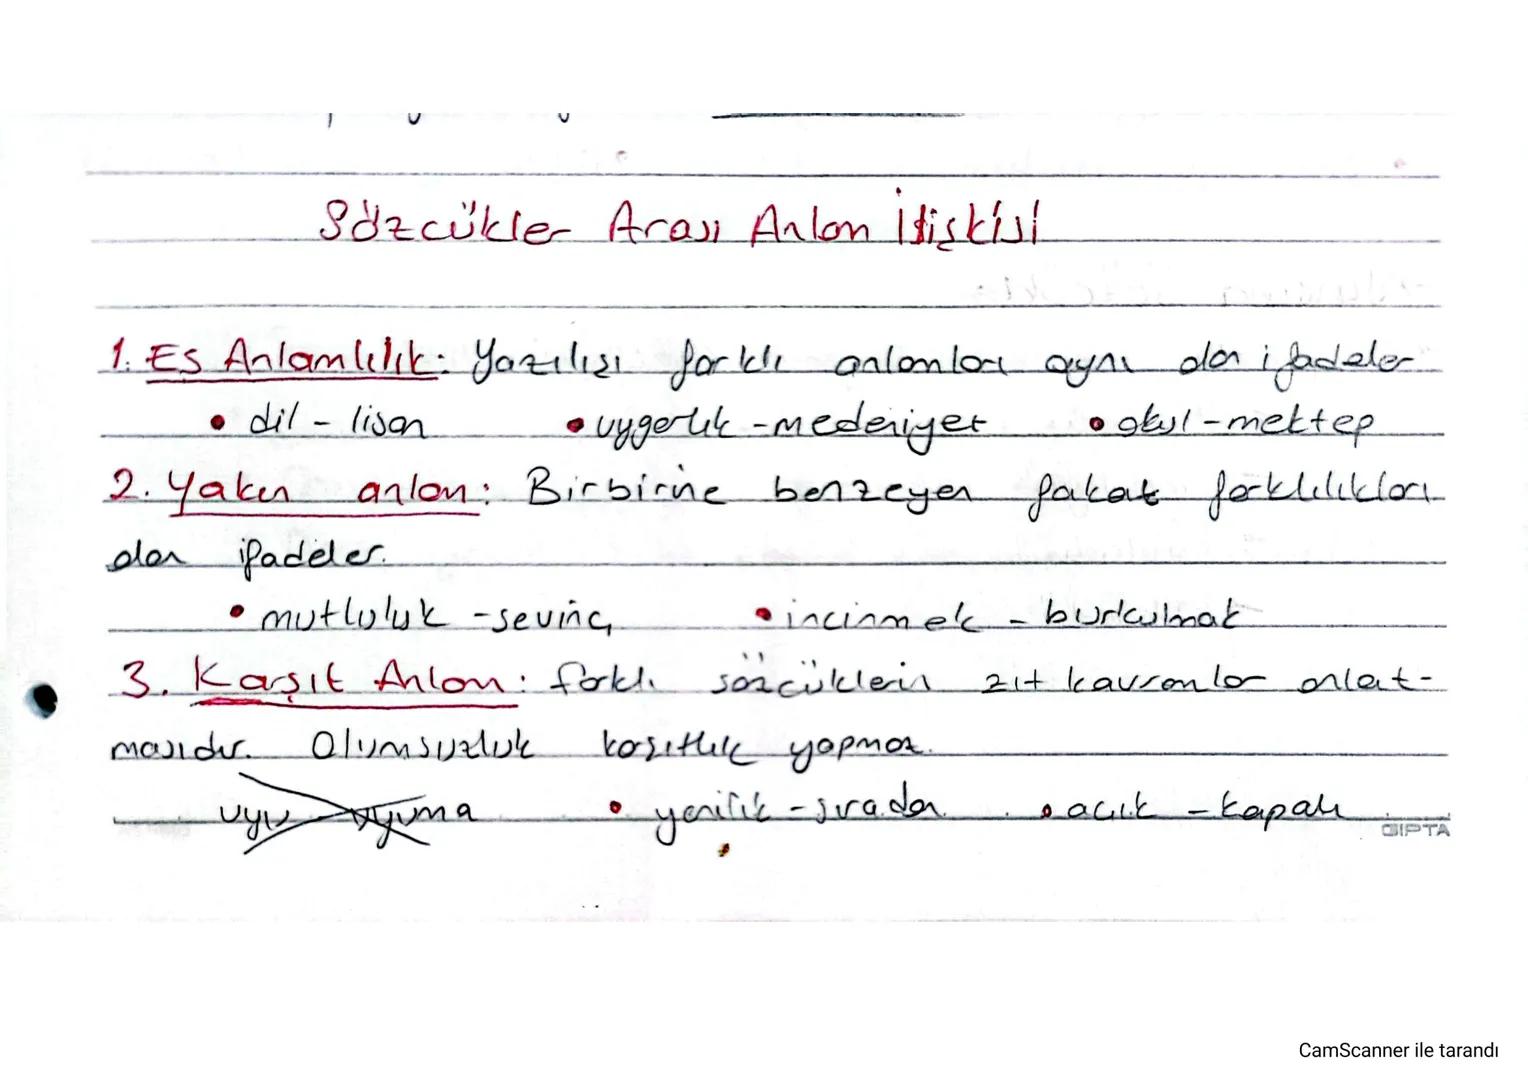 Sözcükler Arası Anlam İlişkisi
1. Eş Anlamlılık: Yazılışı farklı anlamları aynı olan ifadeler
• dil - lisan • uygarlık - medeniyet • okul - mektep
2. Yakın anlam: Birbirine benzeyen fakat farklılıkları
olan ifadeler.
• mutluluk - sevinç • incinmek - burkulmak
3. Karşıt Anlam: farklı sözcüklerin zıt kavramlar anlat-
masıdır. Olumsuzluk karşıtlık yapmaz.
uyu uyuma • yenilik - sıradan • açık - kapalı
GIPTA
CamScanner ile tarandı